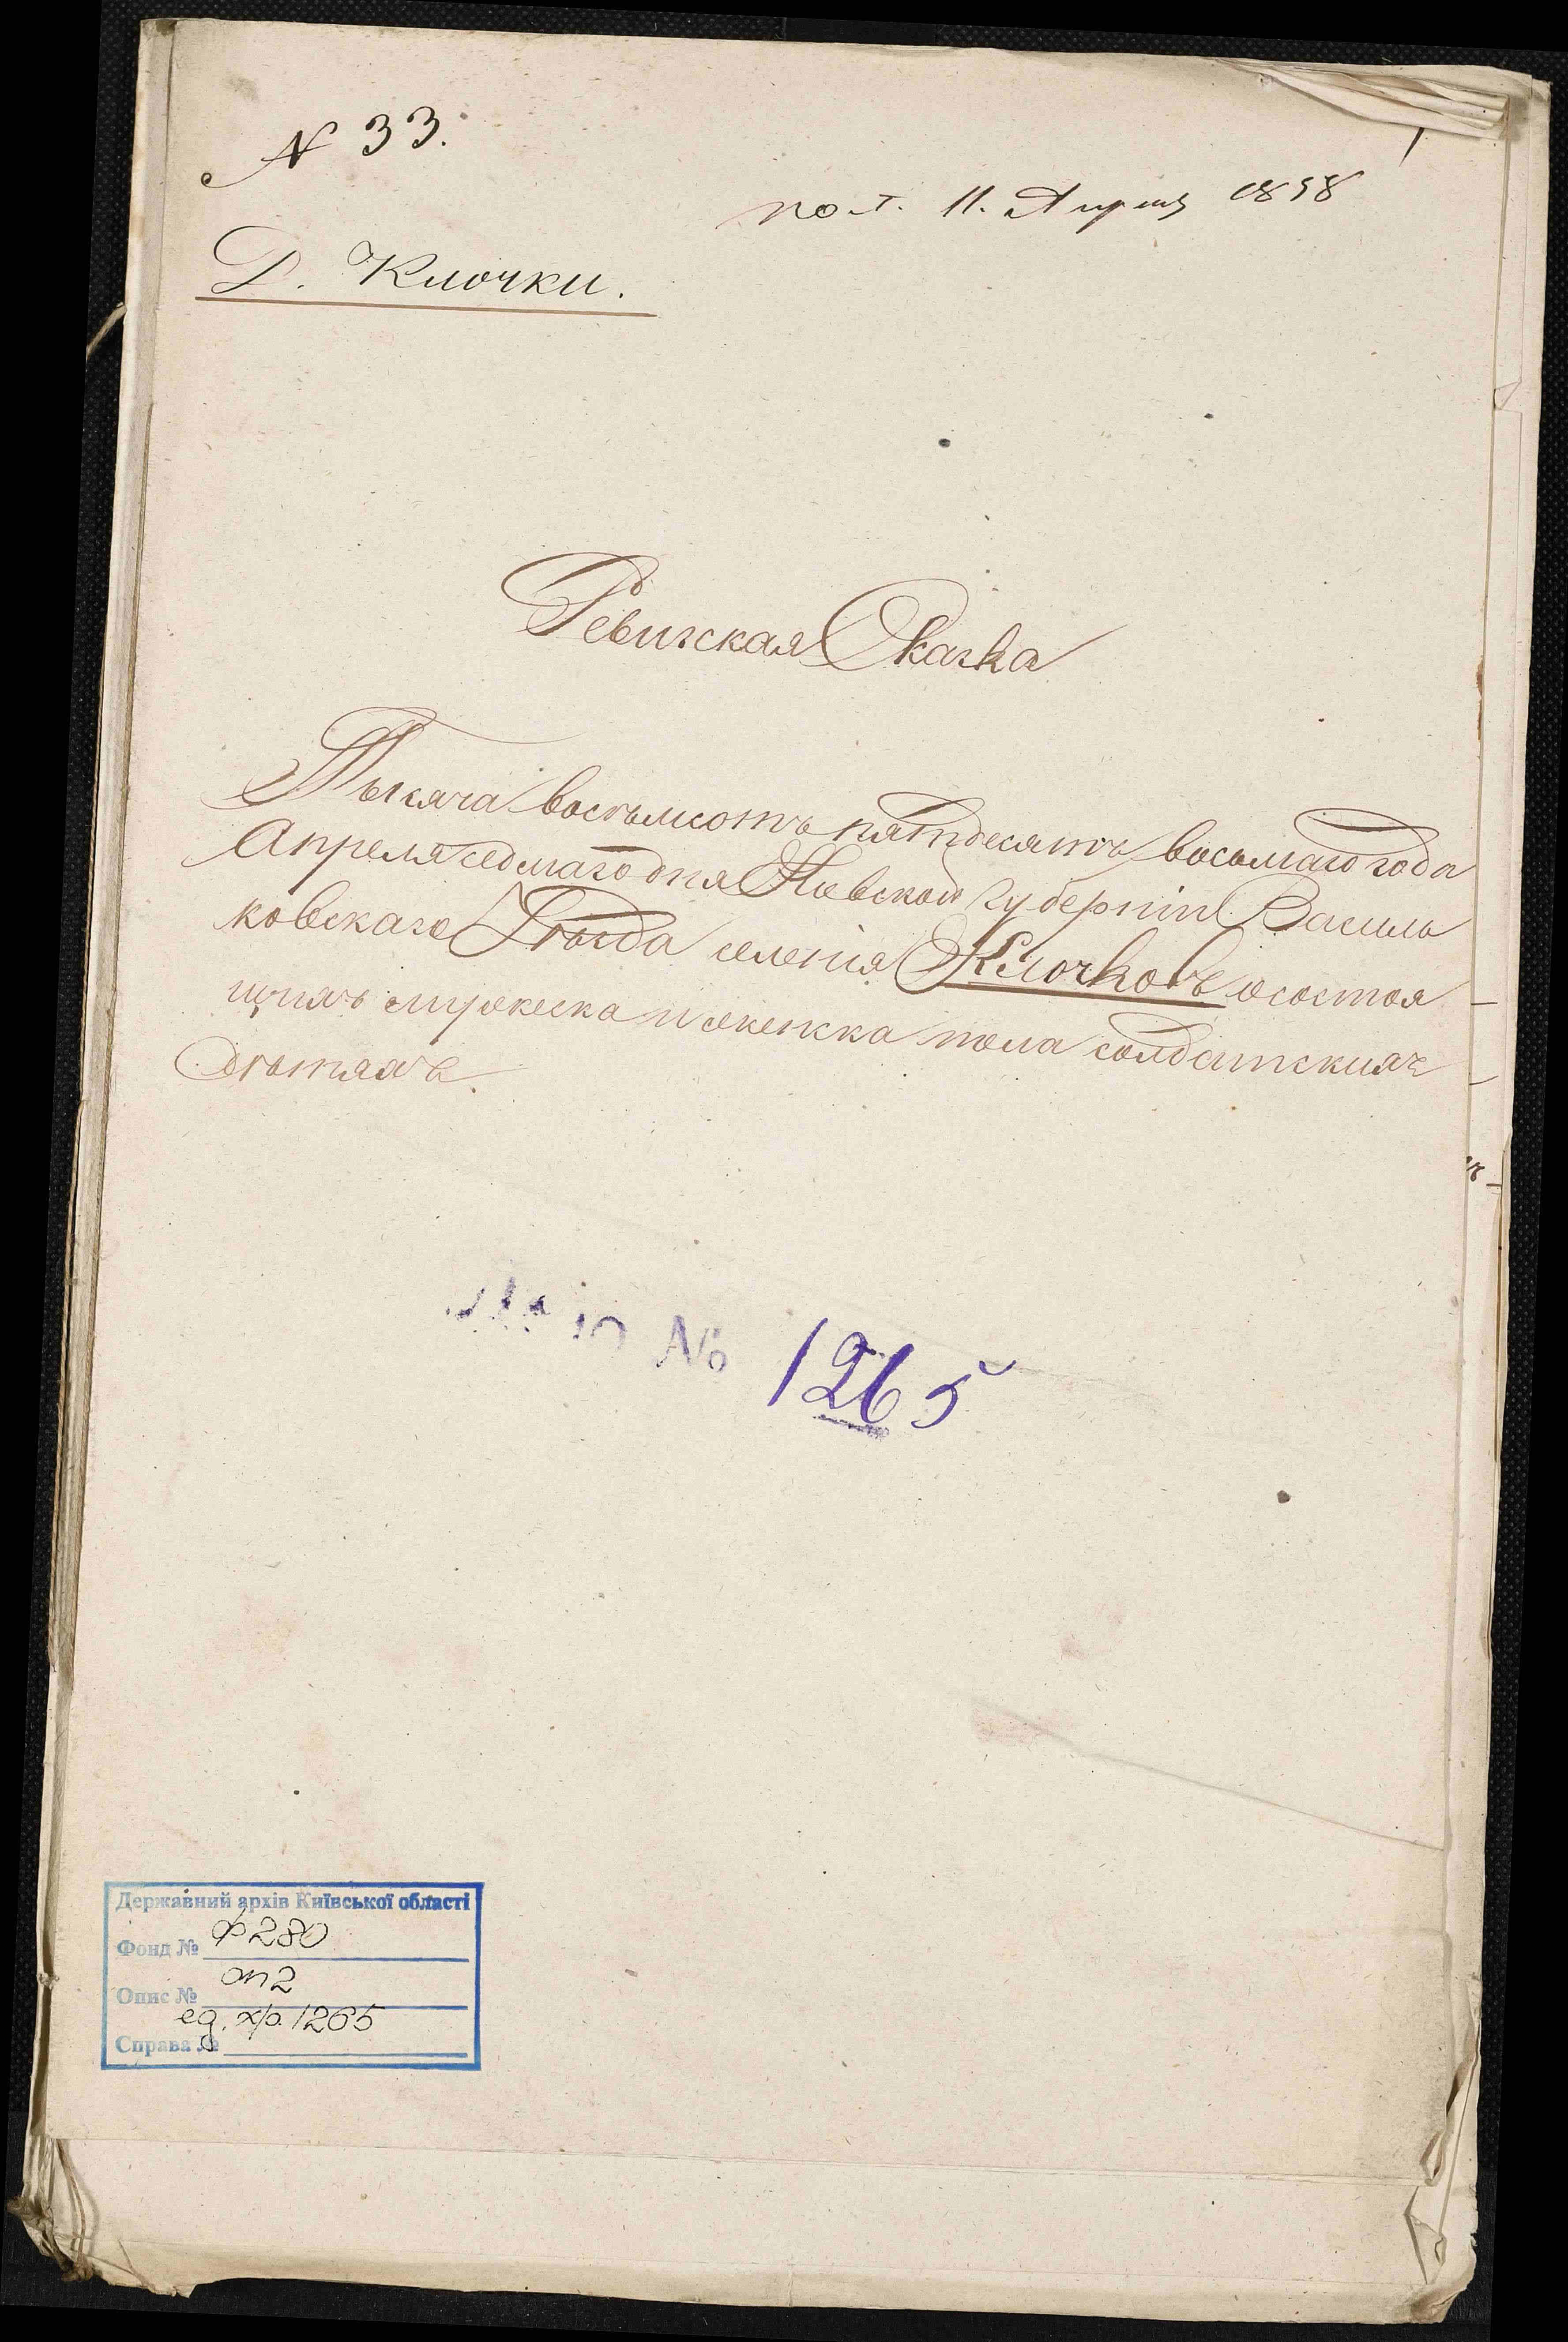 N 33.
1
пол. 11. Апреля 1858
Д. Клочки.
Ревижская Сказка
Тысяча восемьсотъ пятдесятъ восьмаго года
Апреля седмаго дня Киевской губерніи Василь
ковскаго Уѣзда селенія Клочковъ о состоя
щихъ мужеска и женска пола солдатскихъ
дѣтяхъ.
№ 1265
Державний архів Київської області
Фонд № ф 280
Опис № оп 2
ед. хр. 1265
Справа №